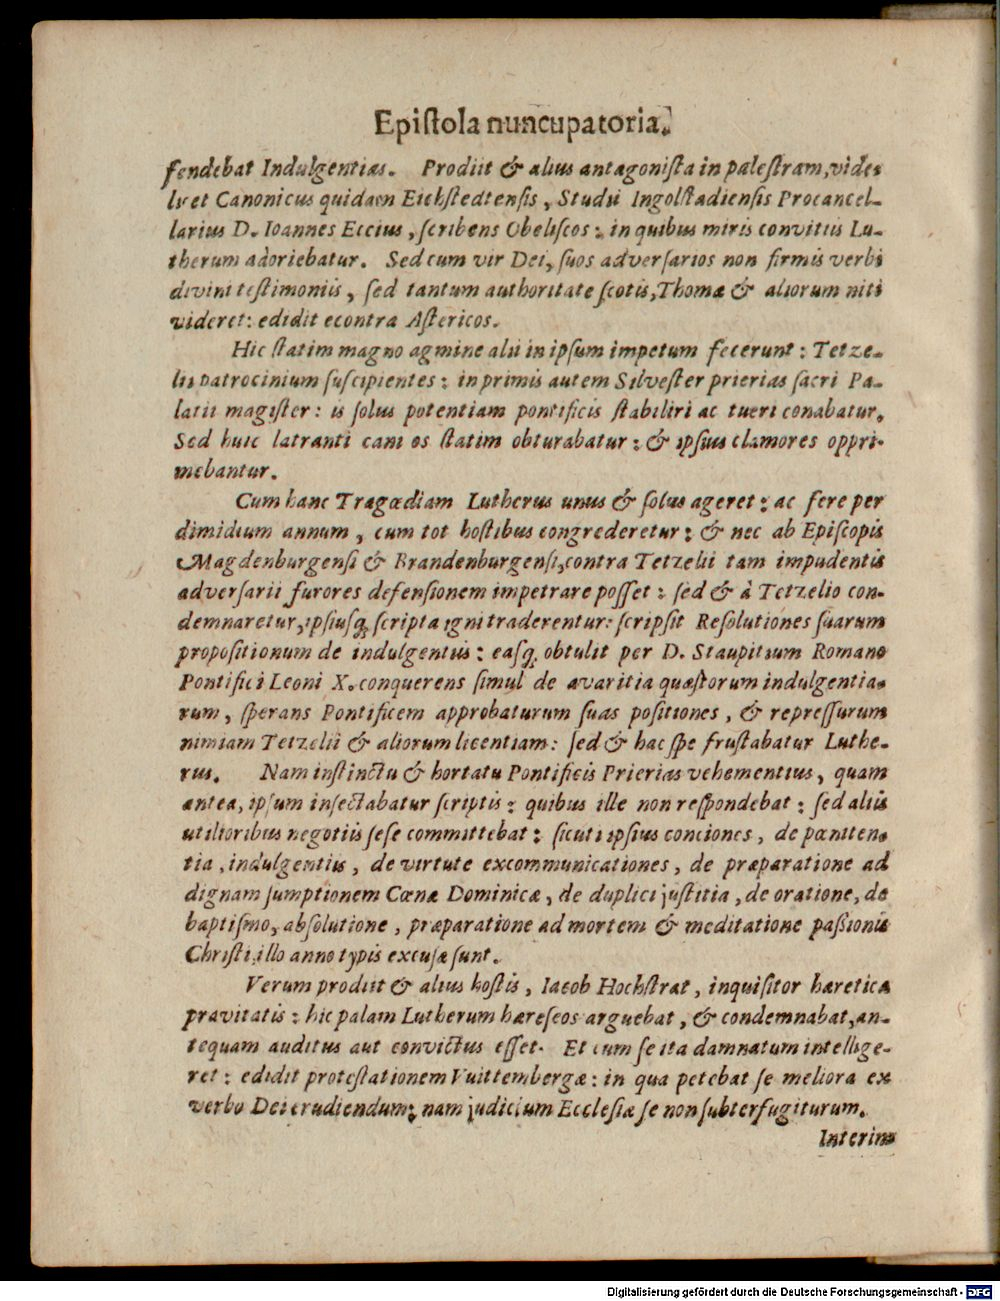 Epiſtola nuncupatoria.
fendebat Indulgentias. Prodiit & alius antagoniſta in paleſtram, vide-
licet Canonicus quidam Eichſtedtenſis, Studii Ingolſtadienſis Procancel-
larius D. Ioannes Eccius, ſcribens Obeliſcos: in quibus miris convitiis Lu-
therum adoriebatur. Sed cum vir Dei, ſuos adverſarios non firmis verbi
divini teſtimoniis, ſed tantum authoritate ſcotis, Thomæ & aliorum niti
videret: edidit econtra Aſtericos.
Hic ſtatim magno agmine alii in ipſum impetum fecerunt: Tetze-
lii patrocinium ſuſcipientes: inprimis autem Silveſter prierias ſacri Pa-
latii magiſter: is ſolus potentiam pontificis ſtabiliri ac tueri conabatur.
Sed huic latranti cani os ſtatim obturabatur: & ipſius clamores oppri-
mebantur.
Cum hanc Tragœdiam Lutherus unus & ſolus ageret: ac fere per
dimidium annum, cum tot hoſtibus congrederetur: & nec ab Epiſcopis
Magdenburgenſi & Brandenburgenſi, contra Tetzelii tam impudentis
adverſarii furores defenſionem impetrare poſſet: ſed & à Tetzelio con-
demnaretur, ipſiusq́; ſcripta igni traderentur: ſcripſit Reſolutiones ſuarum
propoſitionum de indulgentiis: eaſq́; obtulit per D. Staupitium Romano
Pontifici Leoni X. conquerens ſimul de avaritia quæſtorum indulgentia-
rum, ſperans Pontificem approbaturum ſuas poſitiones, & repreſſurum
nimiam Tetzelii & aliorum licentiam: ſed & hac ſpe fruſtabatur Luthe-
rus. Nam inſtinctu & hortatu Pontificis Prierias vehementius, quam
antea, ipſum inſectabatur ſcriptis: quibus ille non reſpondebat: ſed aliis
utilioribus negotiis ſeſe committebat: ſicuti ipſius conciones, de pœniten-
tia, indulgentiis, de virtute excommunicationes, de præparatione ad
dignam ſumptionem Cœnæ Dominicæ, de duplici juſtitia, de oratione, de
baptiſmo, abſolutione, præparatione ad mortem & meditatione paſsionis
Chriſti, illo anno typis excuſæ ſunt.
Verum prodiit & alius hoſtis, Iacob Hochſtrat, inquiſitor hæreticæ
pravitatis: hic palam Lutherum hæreſeos arguebat, & condemnabat, an-
tequam auditus aut convictus eſſet. Et cum ſe ita damnatum intellige-
ret: edidit proteſtationem Vuittembergæ: in qua petebat ſe meliora ex
verbo Dei erudiendum: nam judicium Eccleſiæ ſe non ſubterfugiturum.
Interim
Digitalisierung gefördert durch die Deutsche Forschungsgemeinschaft - DFG